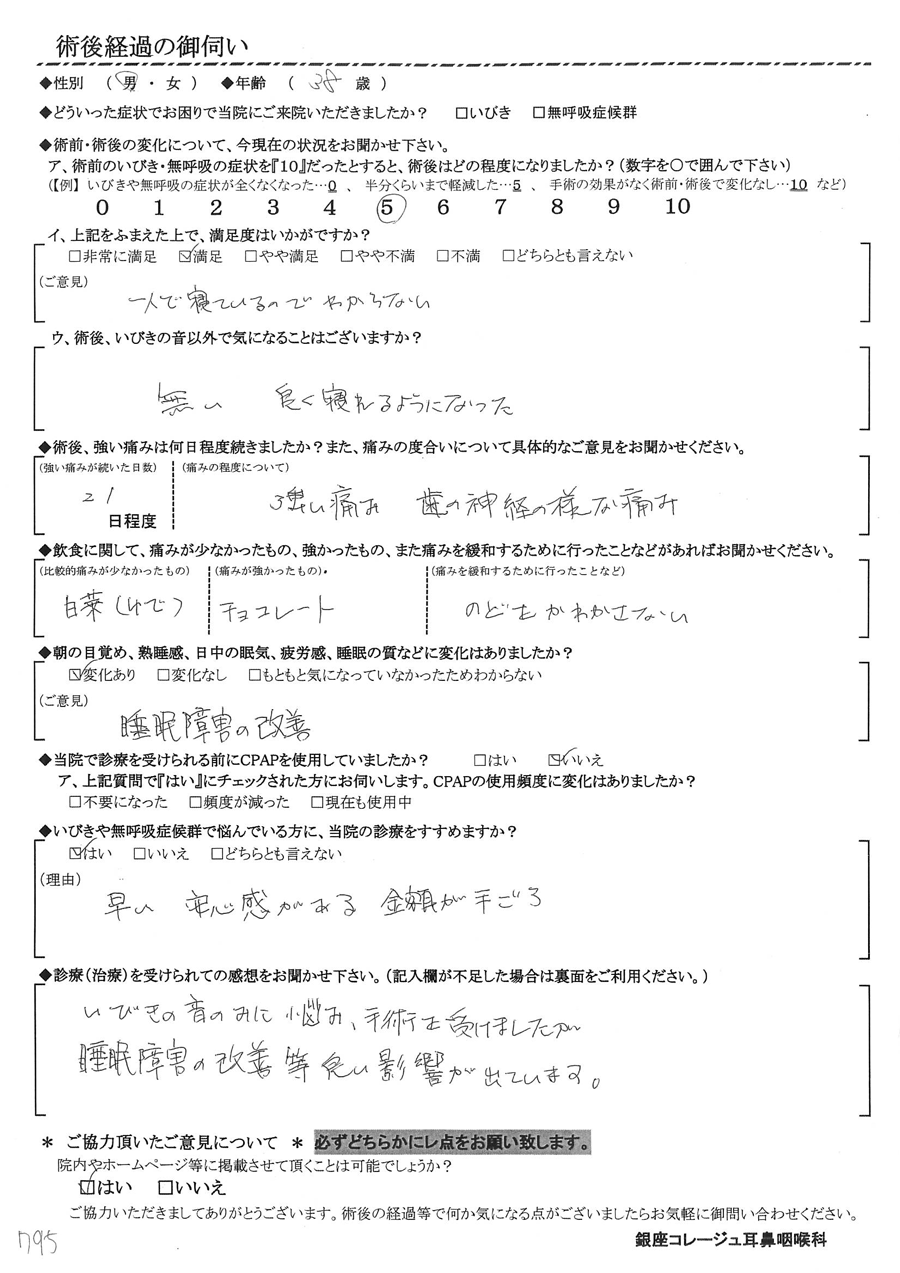 術後経過の御伺い
◆性別 ( 男 ・ 女 ) ◆年齢 ( 38 歳 )
◆どういった症状でお困りで当院にご来院いただきましたか? □いびき □無呼吸症候群
◆術前・術後の変化について、今現在の状況をお聞かせ下さい。
ア、術前のいびき・無呼吸の症状を『10』だったとすると、術後はどの程度になりましたか?(数字を○で囲んで下さい)
(【例】 いびきや無呼吸の症状が全くなくなった…0 、 半分くらいまで軽減した…5 、 手術の効果がなく術前・術後で変化なし…10 など)
0 1 2 3 4 5 6 7 8 9 10
イ、上記をふまえた上で、満足度はいかがですか?
□非常に満足 ☑満足 □やや満足 □やや不満 □不満 □どちらとも言えない
(ご意見)
一人で寝ているのでわからない
ウ、術後、いびきの音以外で気になることはございますか?
無い 良く寝れるようになった
◆術後、強い痛みは何日程度続きましたか?また、痛みの度合いについて具体的なご意見をお聞かせください。
(強い痛みが続いた日数) (痛みの程度について)
21 日程度 強い痛み 歯の神経の様な痛み
◆飲食に関して、痛みが少なかったもの、強かったもの、また痛みを緩和するために行ったことなどがあればお聞かせください。
(比較的痛みが少なかったもの) (痛みが強かったもの) (痛みを緩和するために行ったことなど)
白菜(ゆで) チョコレート のどをかわかさない
◆朝の目覚め、熟睡感、日中の眠気、疲労感、睡眠の質などに変化はありましたか?
☑変化あり □変化なし □もともと気になっていなかったためわからない
(ご意見)
睡眠障害の改善
◆当院で診療を受けられる前にCPAPを使用していましたか? □はい ☑いいえ
ア、上記質問で『はい』にチェックされた方にお伺いします。CPAPの使用頻度に変化はありましたか?
□不要になった □頻度が減った □現在も使用中
◆いびきや無呼吸症候群で悩んでいる方に、当院の診療をすすめますか?
☑はい □いいえ □どちらとも言えない
(理由)
早い 安心感がある 金額が手ごろ
◆診療(治療)を受けられての感想をお聞かせ下さい。(記入欄が不足した場合は裏面をご利用ください。)
いびきの音のみに悩み、手術を受けましたが
睡眠障害の改善等良い影響が出ています。
* ご協力頂いたご意見について * 必ずどちらかにレ点をお願い致します。
院内やホームページ等に掲載させて頂くことは可能でしょうか?
☑はい □いいえ
ご協力いただきましてありがとうございます。術後の経過等で何か気になる点がございましたらお気軽に御問い合わせください。
銀座コレージュ耳鼻咽喉科
795